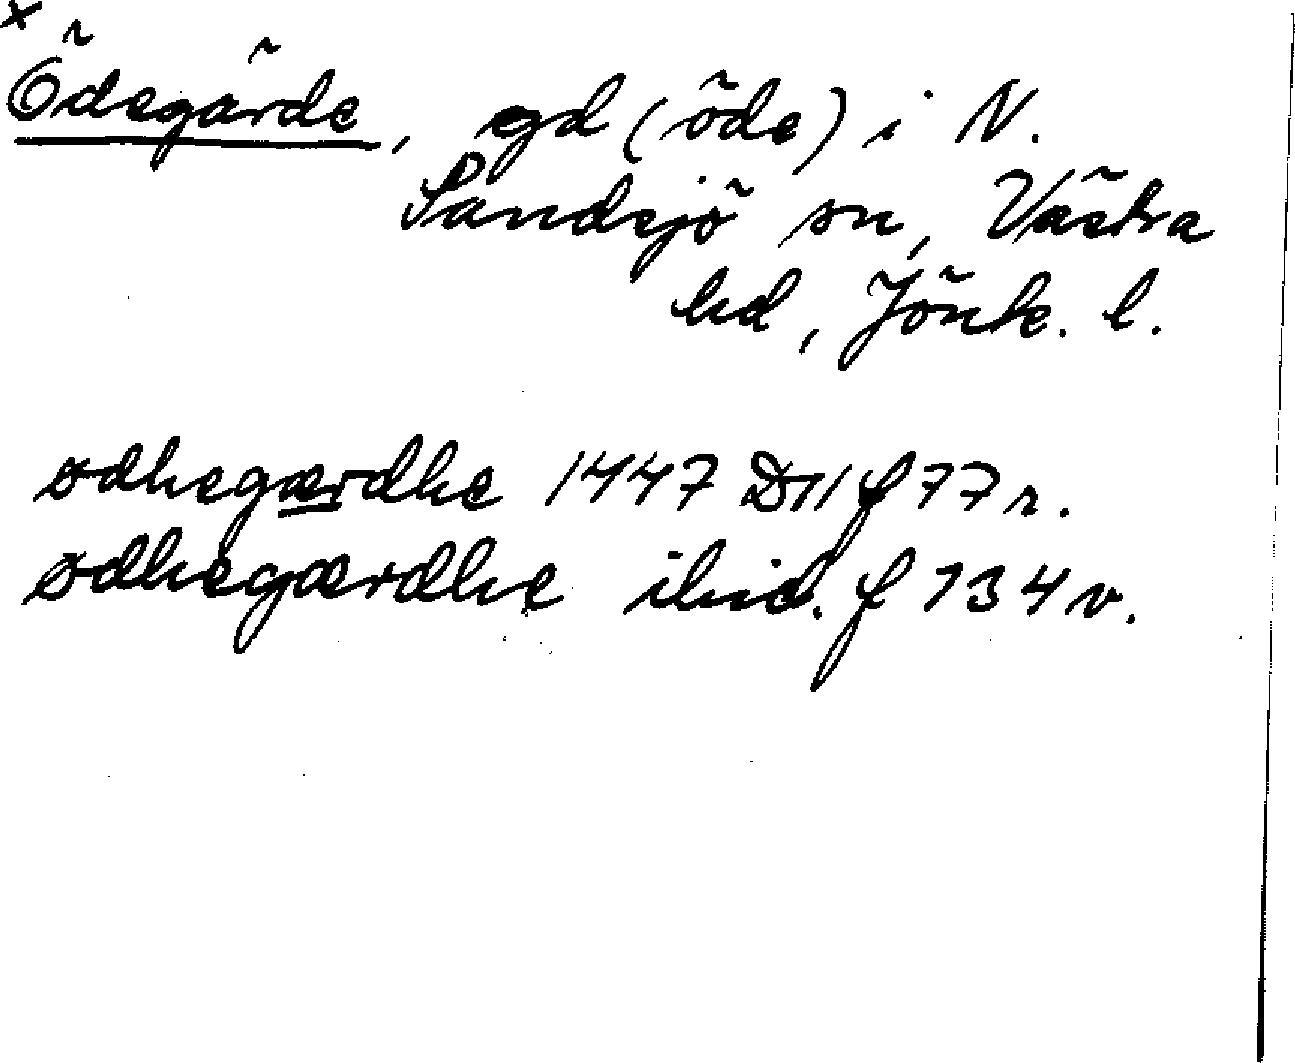 x
Ödegärde, gd (öde) i N.
Sandsjö sn, Västra
hd, Jönk. l.
ødhegærdhe 1447 D11 f 77 r.
ødhegærdhe ibid. f 134 v.